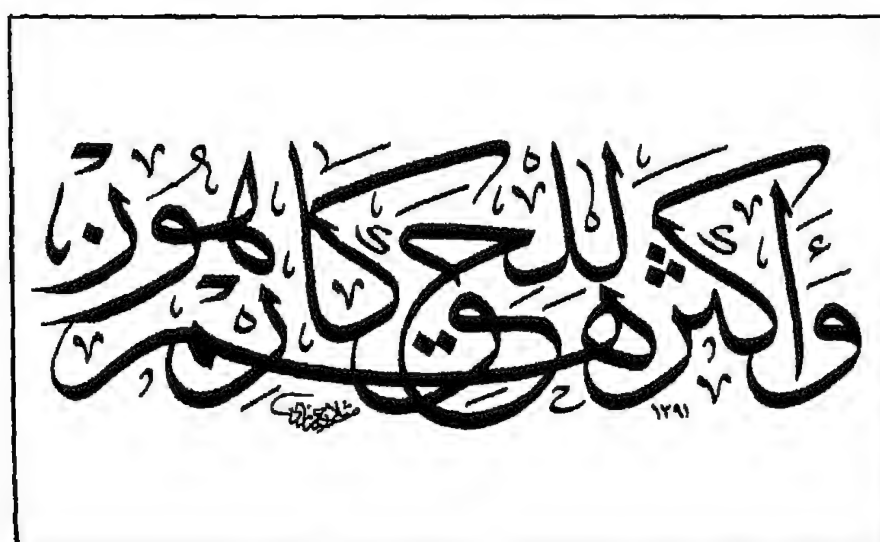 وَأَكْثَرُهُمْ لِلْحَقِّ كَارِهُونَ
١٣٩١